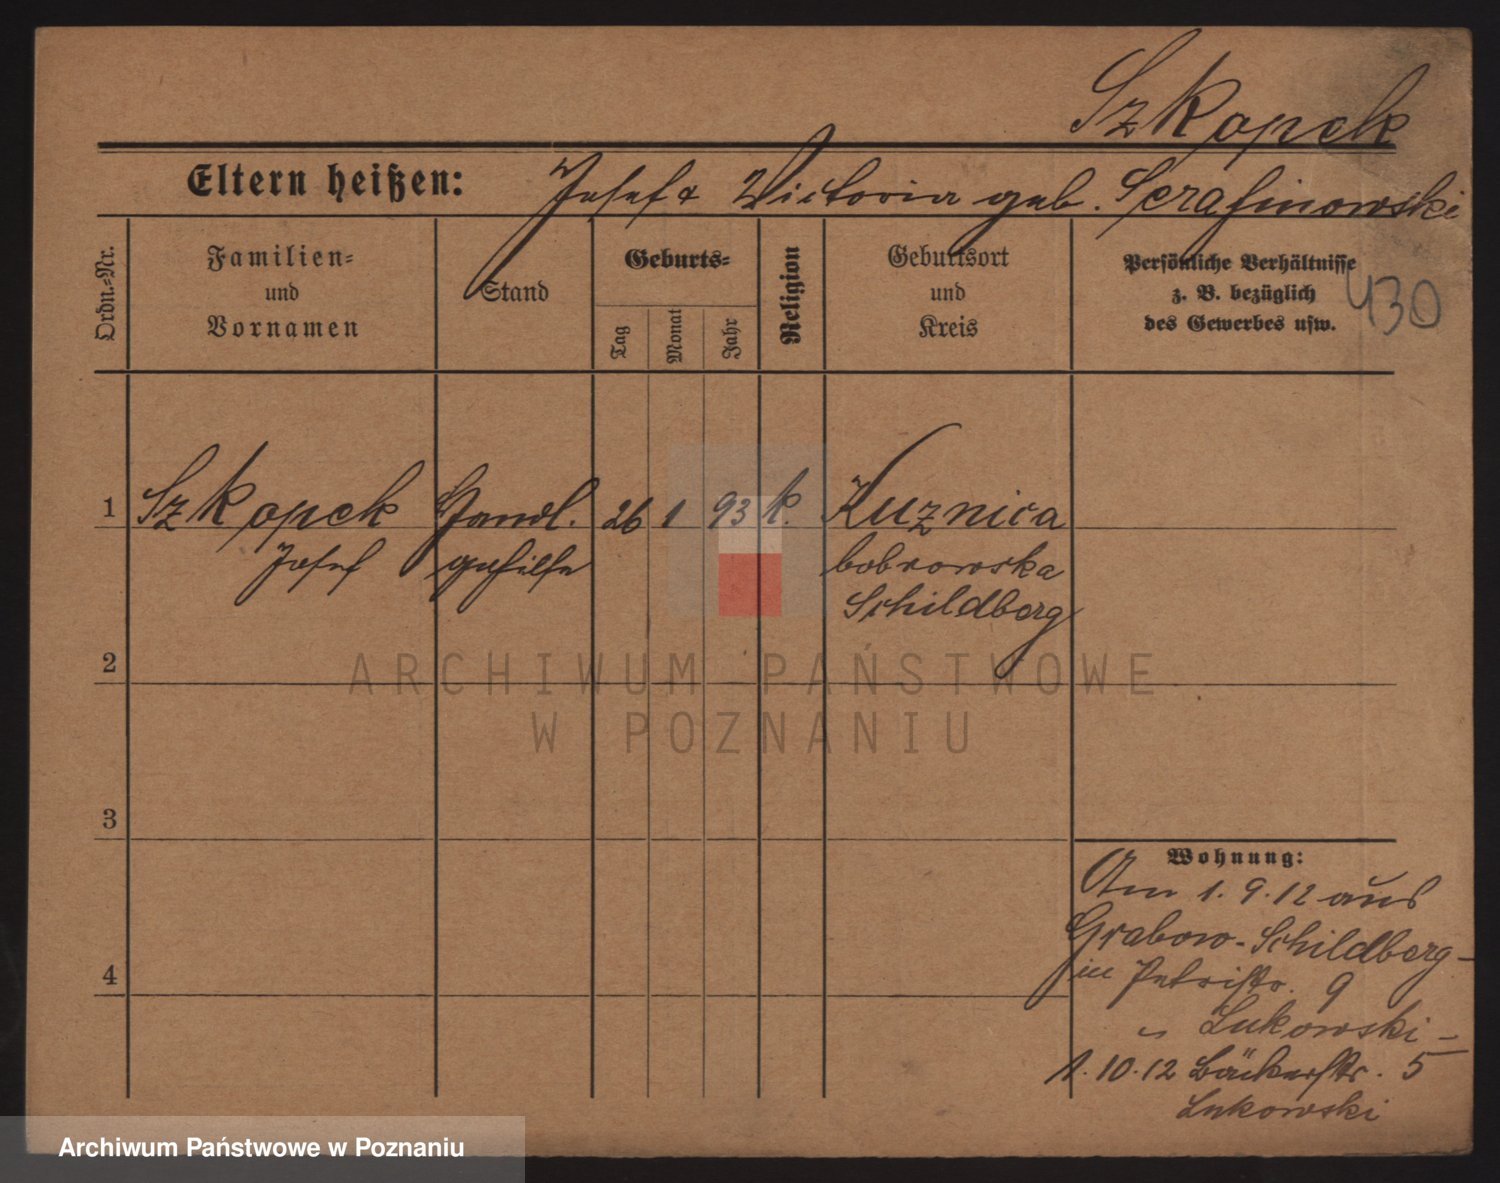 Szkopek
Eltern heißen: Josef & Victoria geb. Serafinowski
Ordn.-Nr.
Familien-
und
Vornamen
Stand
Geburts-
Tag
Monat
Jahr
Religion
Geburtsort
und
Kreis
Persönliche Verhältnisse
z. B. bezüglich
des Gewerbes usw.
430
1 Szkopek Handl. 26 1 93 k. Kuznica
Josef gehilfe bobrowska
Schildberg
2
3
4
Wohnung:
Am 1.9.12 aus
Grabow-Schildberg-
in Petristr. 9
" Lukowski-
1.10.12 Bäckerstr. 5
Lukowski
ARCHIWUM PAŃSTWOWE
W POZNANIU
Archiwum Państwowe w Poznaniu